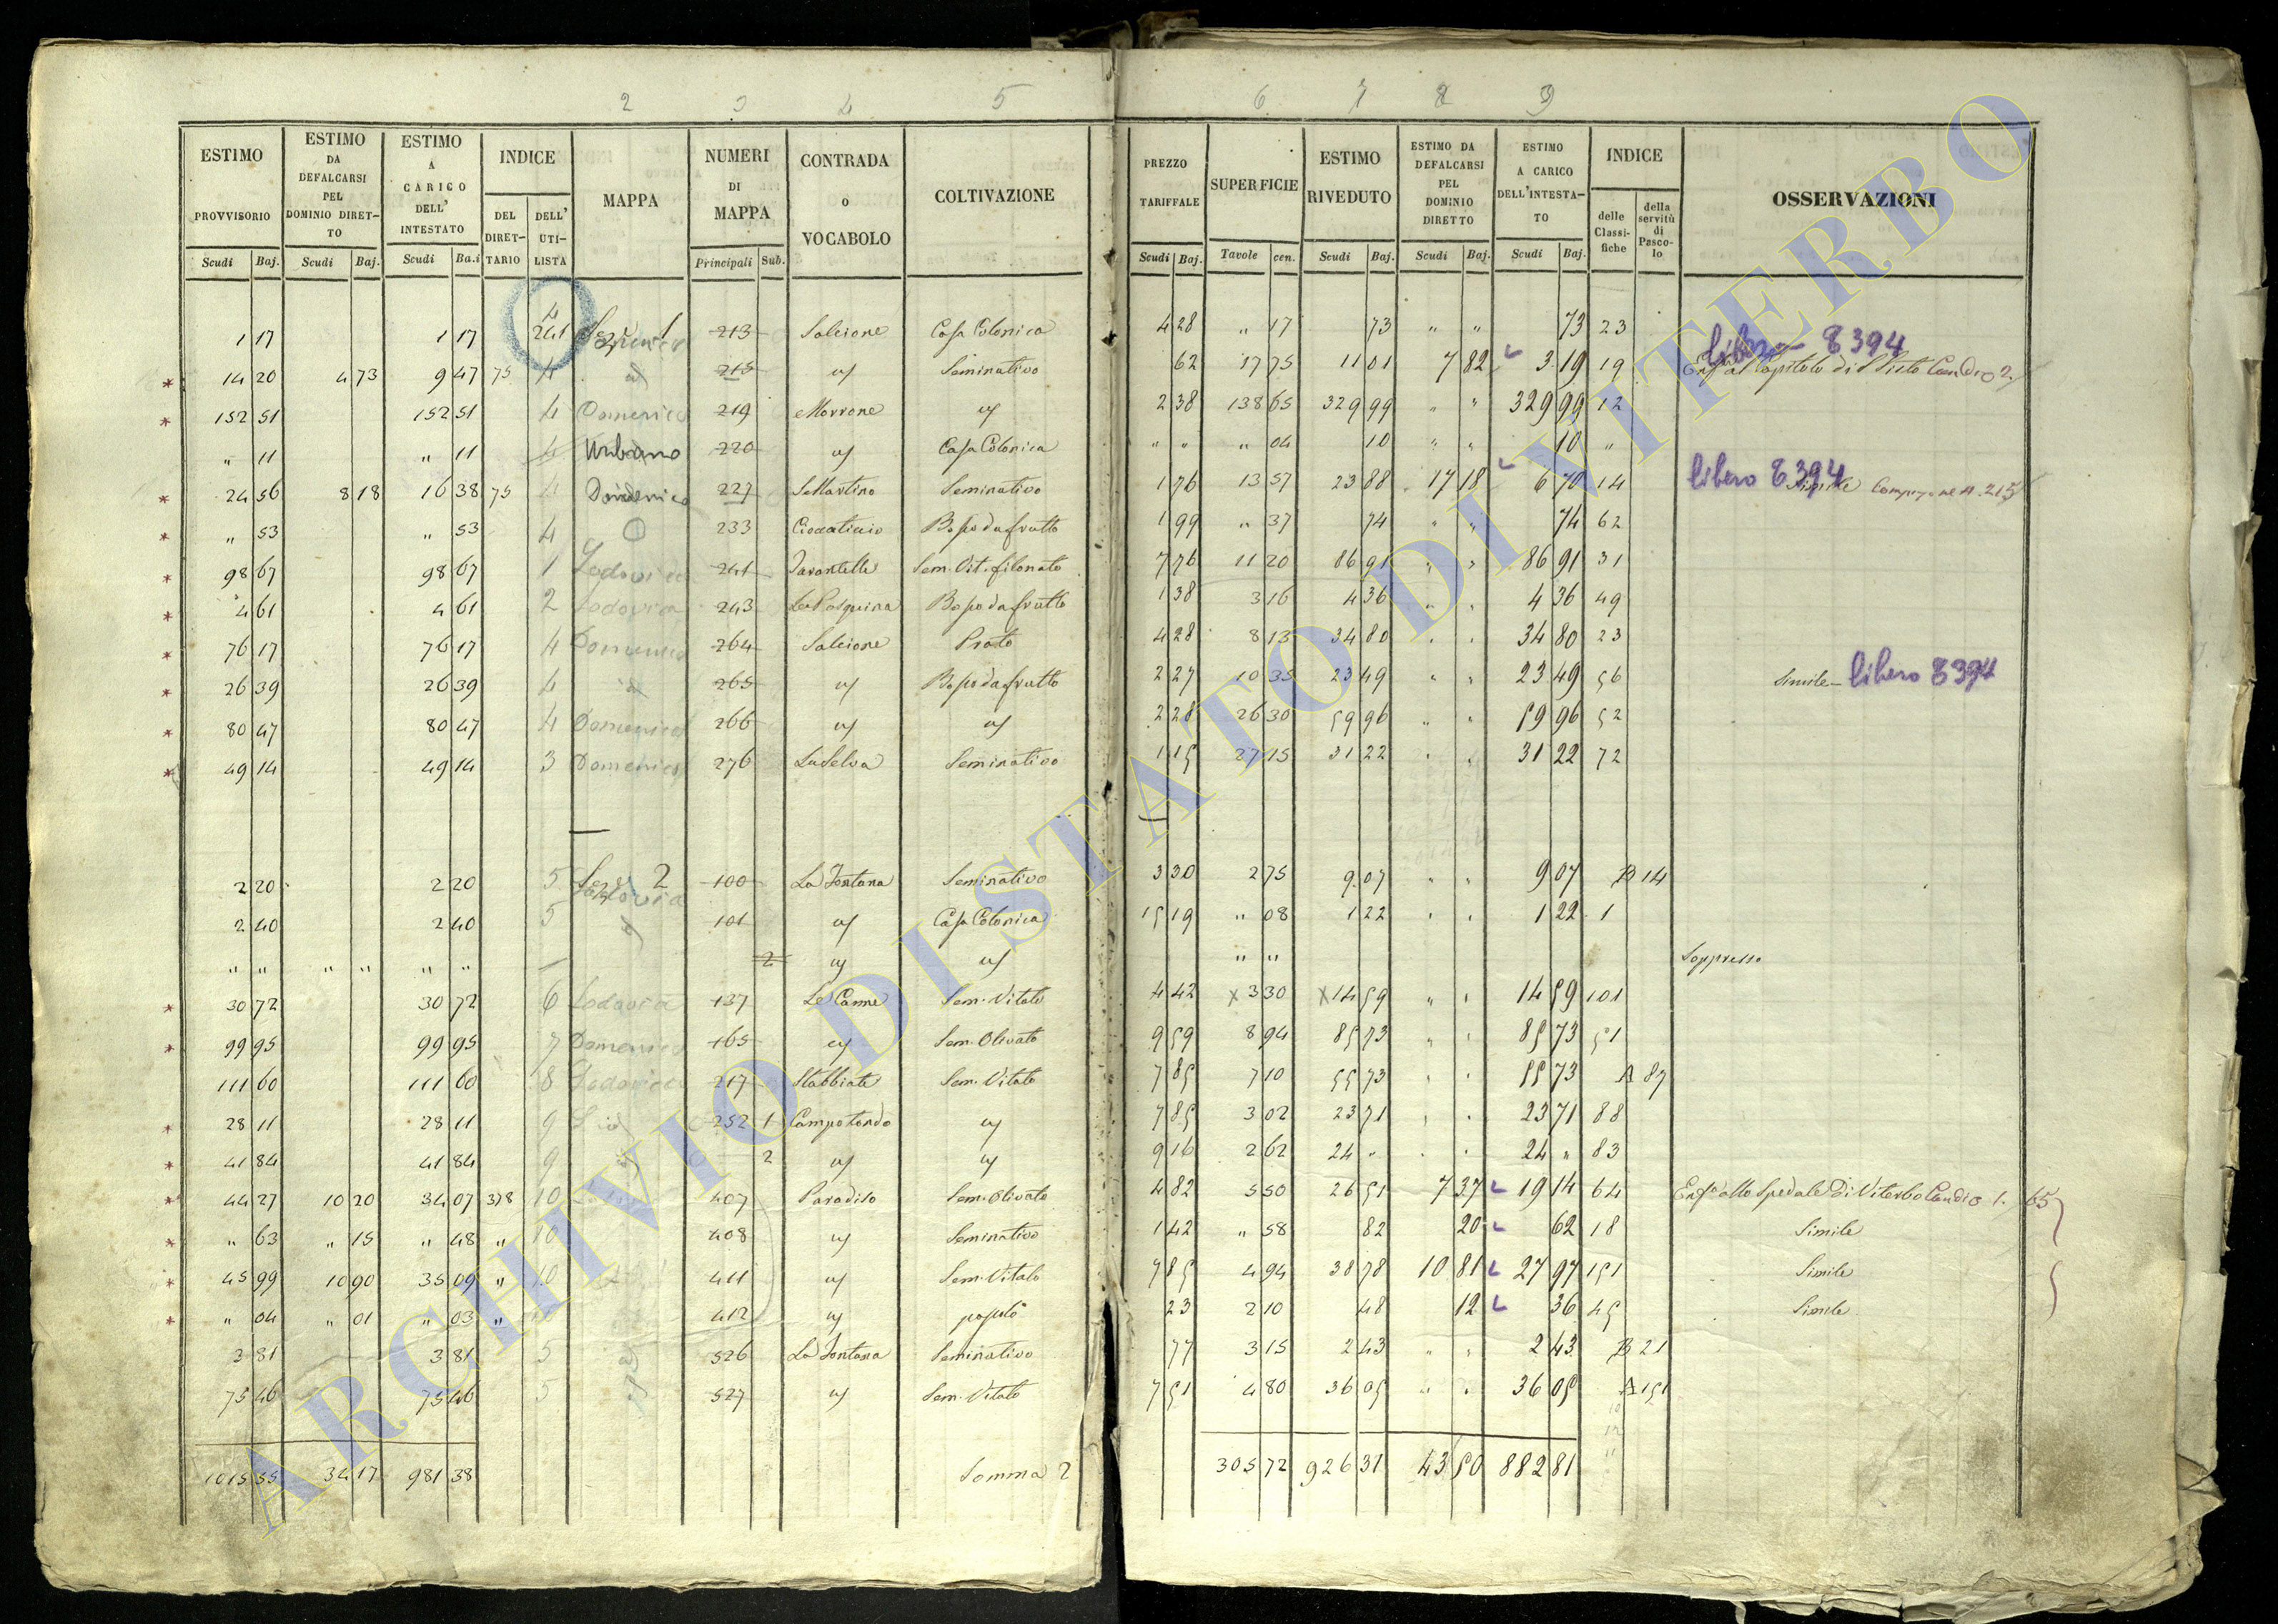 2 3 4 5 6 7 8 9
ESTIMO PROVVISORIO Scudi Baj. | ESTIMO DA DEFALCARSI PEL DOMINIO DIRET-TO Scudi Baj. | ESTIMO A CARICO DELL' INTESTATO Scudi Ba.i | INDICE DEL DIRET-TARIO DELL' UTI-LISTA | MAPPA | NUMERI DI MAPPA Principali Sub. | CONTRADA o VOCABOLO | COLTIVAZIONE | PREZZO TARIFFALE Scudi Baj. | SUPERFICIE Tavole cen. | ESTIMO RIVEDUTO Scudi Baj. | ESTIMO DA DEFALCARSI PEL DOMINIO DIRETTO Scudi Baj. | ESTIMO A CARICO DELL'INTESTA-TO Scudi Baj. | INDICE delle Classi-fiche della servitù di Pasco-lo | OSSERVAZIONI
1 17 1 17 4 241 Sezione 1 213 Salcione Casa Colonica 4 28 " 17 73 " " 73 23 libero 8394
* 14 20 4 73 9 47 75 4 213 Seminativo 62 17 75 11 01 7 82 3 19 19
* 152 51 152 51 4 Domenico 219 Morrone 2 38 138 65 329 99 " " 329 99 12
" 11 " 11 4 Urbano 220 Casa Colonica " " " 04 10 " " 10 "
* 24 56 8 18 16 38 75 4 Domenico 227 S. Martino Seminativo 1 76 13 57 23 88 17 18 6 70 14 libero 8394 Simile
* " 53 " 53 4 233 Bosco da frutto 1 99 " 37 74 " " 74 62
* 98 67 98 67 1 Lodovica 241 Sem. Vit. filonato 7 76 11 20 86 91 " " 86 91 31
* 4 61 4 61 2 Lodovica 243 La Pasquina Bosco da frutto 1 38 3 16 4 36 " " 4 36 49
* 76 17 76 17 4 Domenico 264 Salcione Prato 4 28 8 13 34 80 " " 34 80 23
* 26 39 26 39 4 id 265 Bosco da frutto 2 27 10 35 23 49 " " 23 49 56 Simile libero 8394
* 80 47 80 47 4 Domenico 266 2 28 26 30 59 96 " " 59 96 52
* 49 14 49 14 3 Domenico 276 La Selva Seminativo 1 15 27 15 31 22 " " 31 22 72
2 20 2 20 5 Sez. 2 Lodovica 100 La Fontana Seminativo 3 30 2 75 9 07 " " 9 07 B 14
2 40 2 40 5 101 Casa Colonica 15 19 " 08 1 22 " " 1 22 1
" " " " " " 2 " " Soppresso
* 30 72 30 72 6 Lodovica 137 Le Canne Sem. Vitato 4 42 x 3 30 x 14 59 " " 14 59 101
* 99 95 99 95 7 Domenico 165 Sem. Olivato 9 59 8 94 85 73 " " 85 73 51
111 60 111 60 8 Lodovica 217 Stabbiate Sem. Vitato 7 85 7 10 55 73 " " 55 73 A 87
* 28 11 28 11 9 252 1 Campo tondo 7 85 3 02 23 71 " " 23 71 88
* 41 84 41 84 9 2 9 16 2 62 24 " 24 " 83
* 44 27 10 20 34 07 378 10 407 Paradiso Sem. Olivato 4 82 5 50 26 51 7 37 19 14 64 allo Spedale di Viterbo
* " 63 " 15 " 48 " 10 408 Seminativo 1 42 " 58 82 20 62 18 Simile
* 45 99 10 90 35 09 " 10 411 Sem. Vitato 7 85 4 94 38 78 10 81 27 97 151 Simile
* " 04 " 01 " 03 " 412 23 2 10 48 12 36 45 Simile
3 81 3 81 5 526 La Fontana Seminativo 77 3 15 2 43 " " 2 43 B 21
75 46 75 46 5 527 Sem. Vitato 7 51 4 80 36 05 " " 36 05 A 151
1015 55 34 17 981 38 Somma 2 305 72 926 31 43 50 882 81
ARCHIVIO DI STATO DI VITERBO